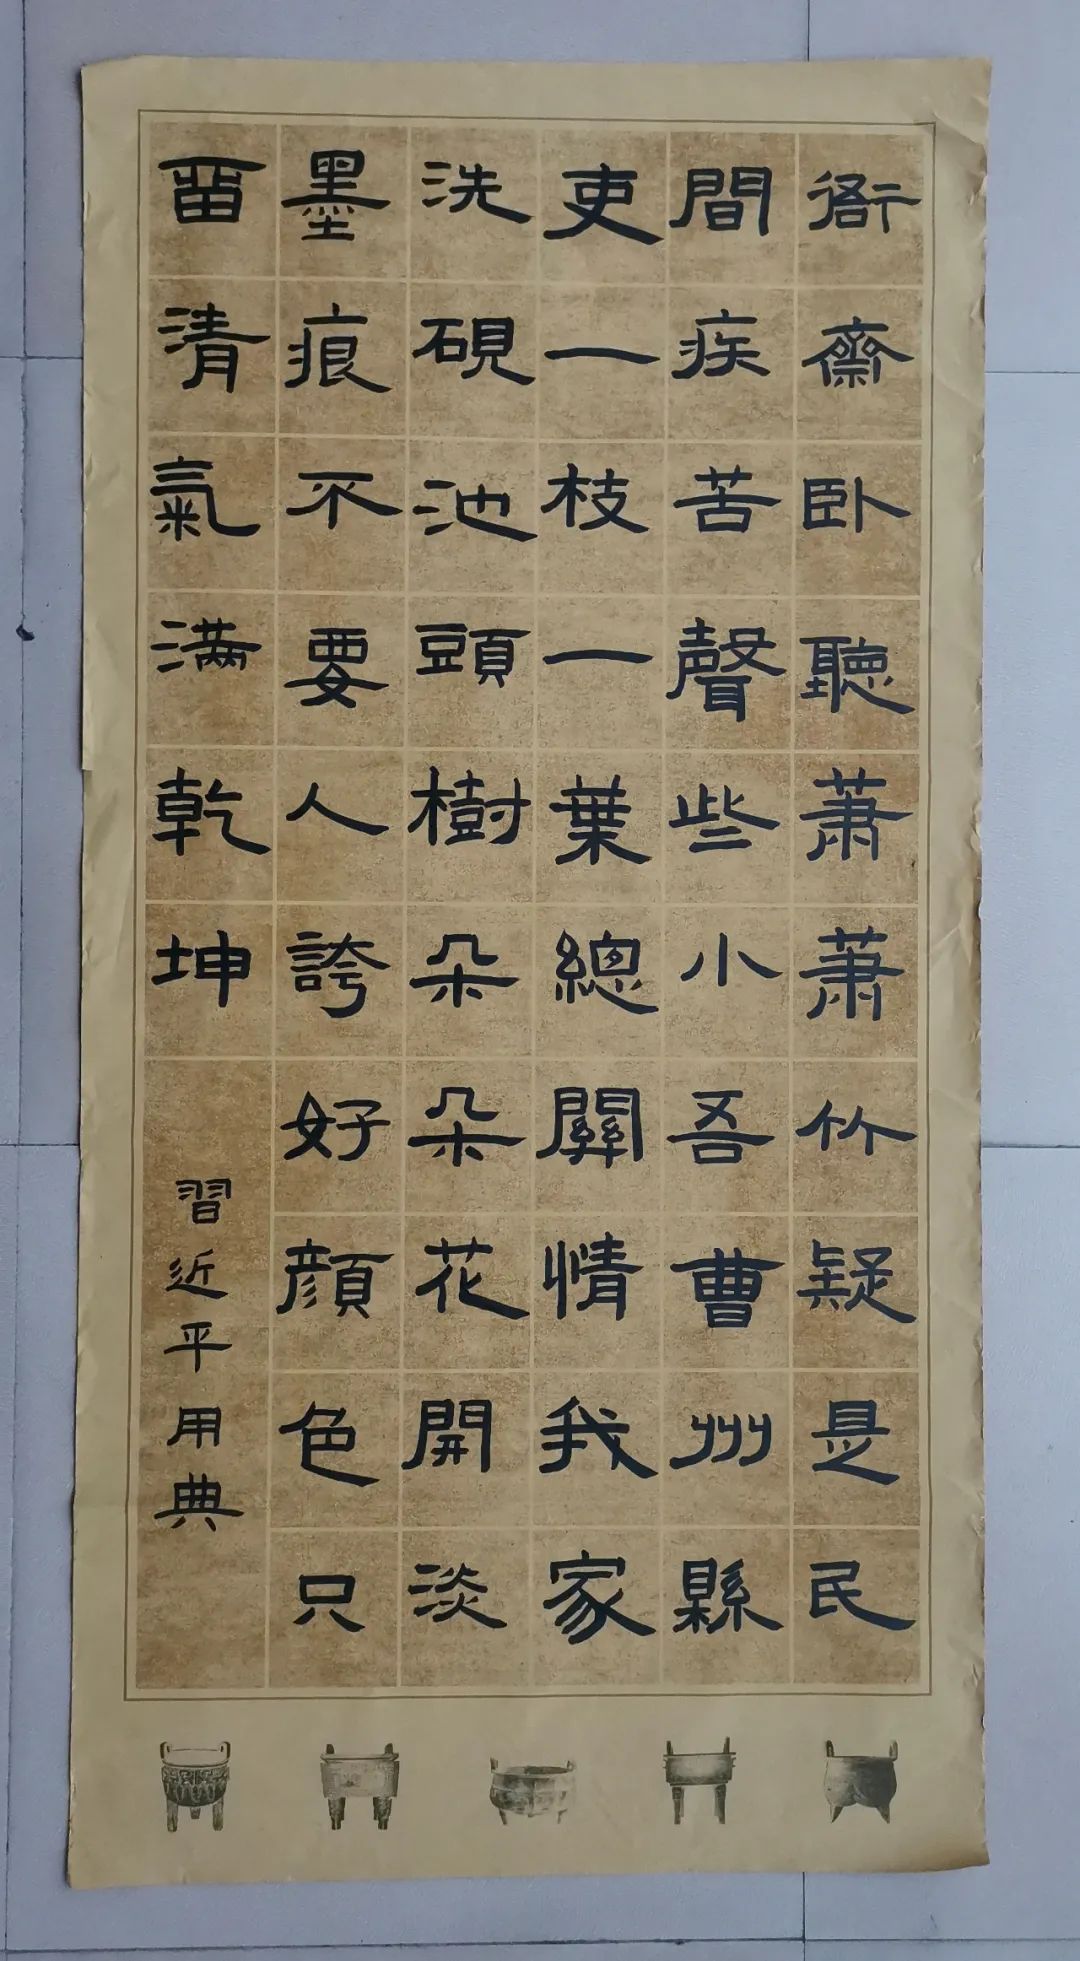 衙齋卧聽蕭蕭竹疑是民
間疾苦聲些小吾曹州縣
吏一枝一葉總關情我家
洗硯池頭樹朵朵花開淡
墨痕不要人誇好顔色只
畱清氣滿乾坤
習近平用典